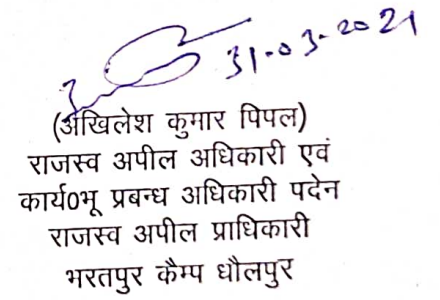 31-03-2021
(अखिलेश कुमार पिपल)
राजस्व अपील अधिकारी एवं
कार्य०भू प्रबन्ध अधिकारी पदेन
राजस्व अपील प्राधिकारी
भरतपुर कैम्प धौलपुर